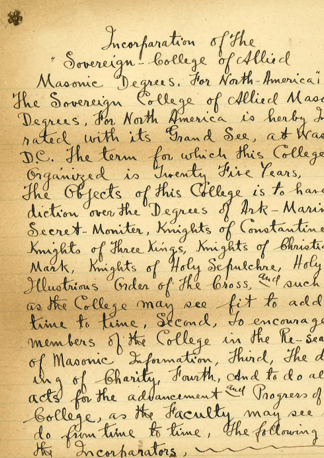 Incorparation of the
"Sovereign-College of Allied
Masonic Degrees, For North-America"
The Sovereign College of Allied Maso
Degrees, For North America is herby I
rated with its Grand See, at Was
D.C. The term for which this College
Organized is Twenty Five Years,
The Objects of this College is to have
diction over the Degrees of Ark-Marin
Secret-Moniter, Knights of Constantine
Knights of Three Kings, Knights of Christia
Mark, Knights of Holy Sepulchre, Holy
Illustrious Order of the Cross, and such
as the College may see fit to add
time to time, Second, To encourage
members of the College in the Re-sea
of Masonic Information, Third, The d
ing of Charity, Fourth, And to do al
acts for the advancement and Progress of
College, as the Faculty may see
do from time to time, The following
the Incorparators,